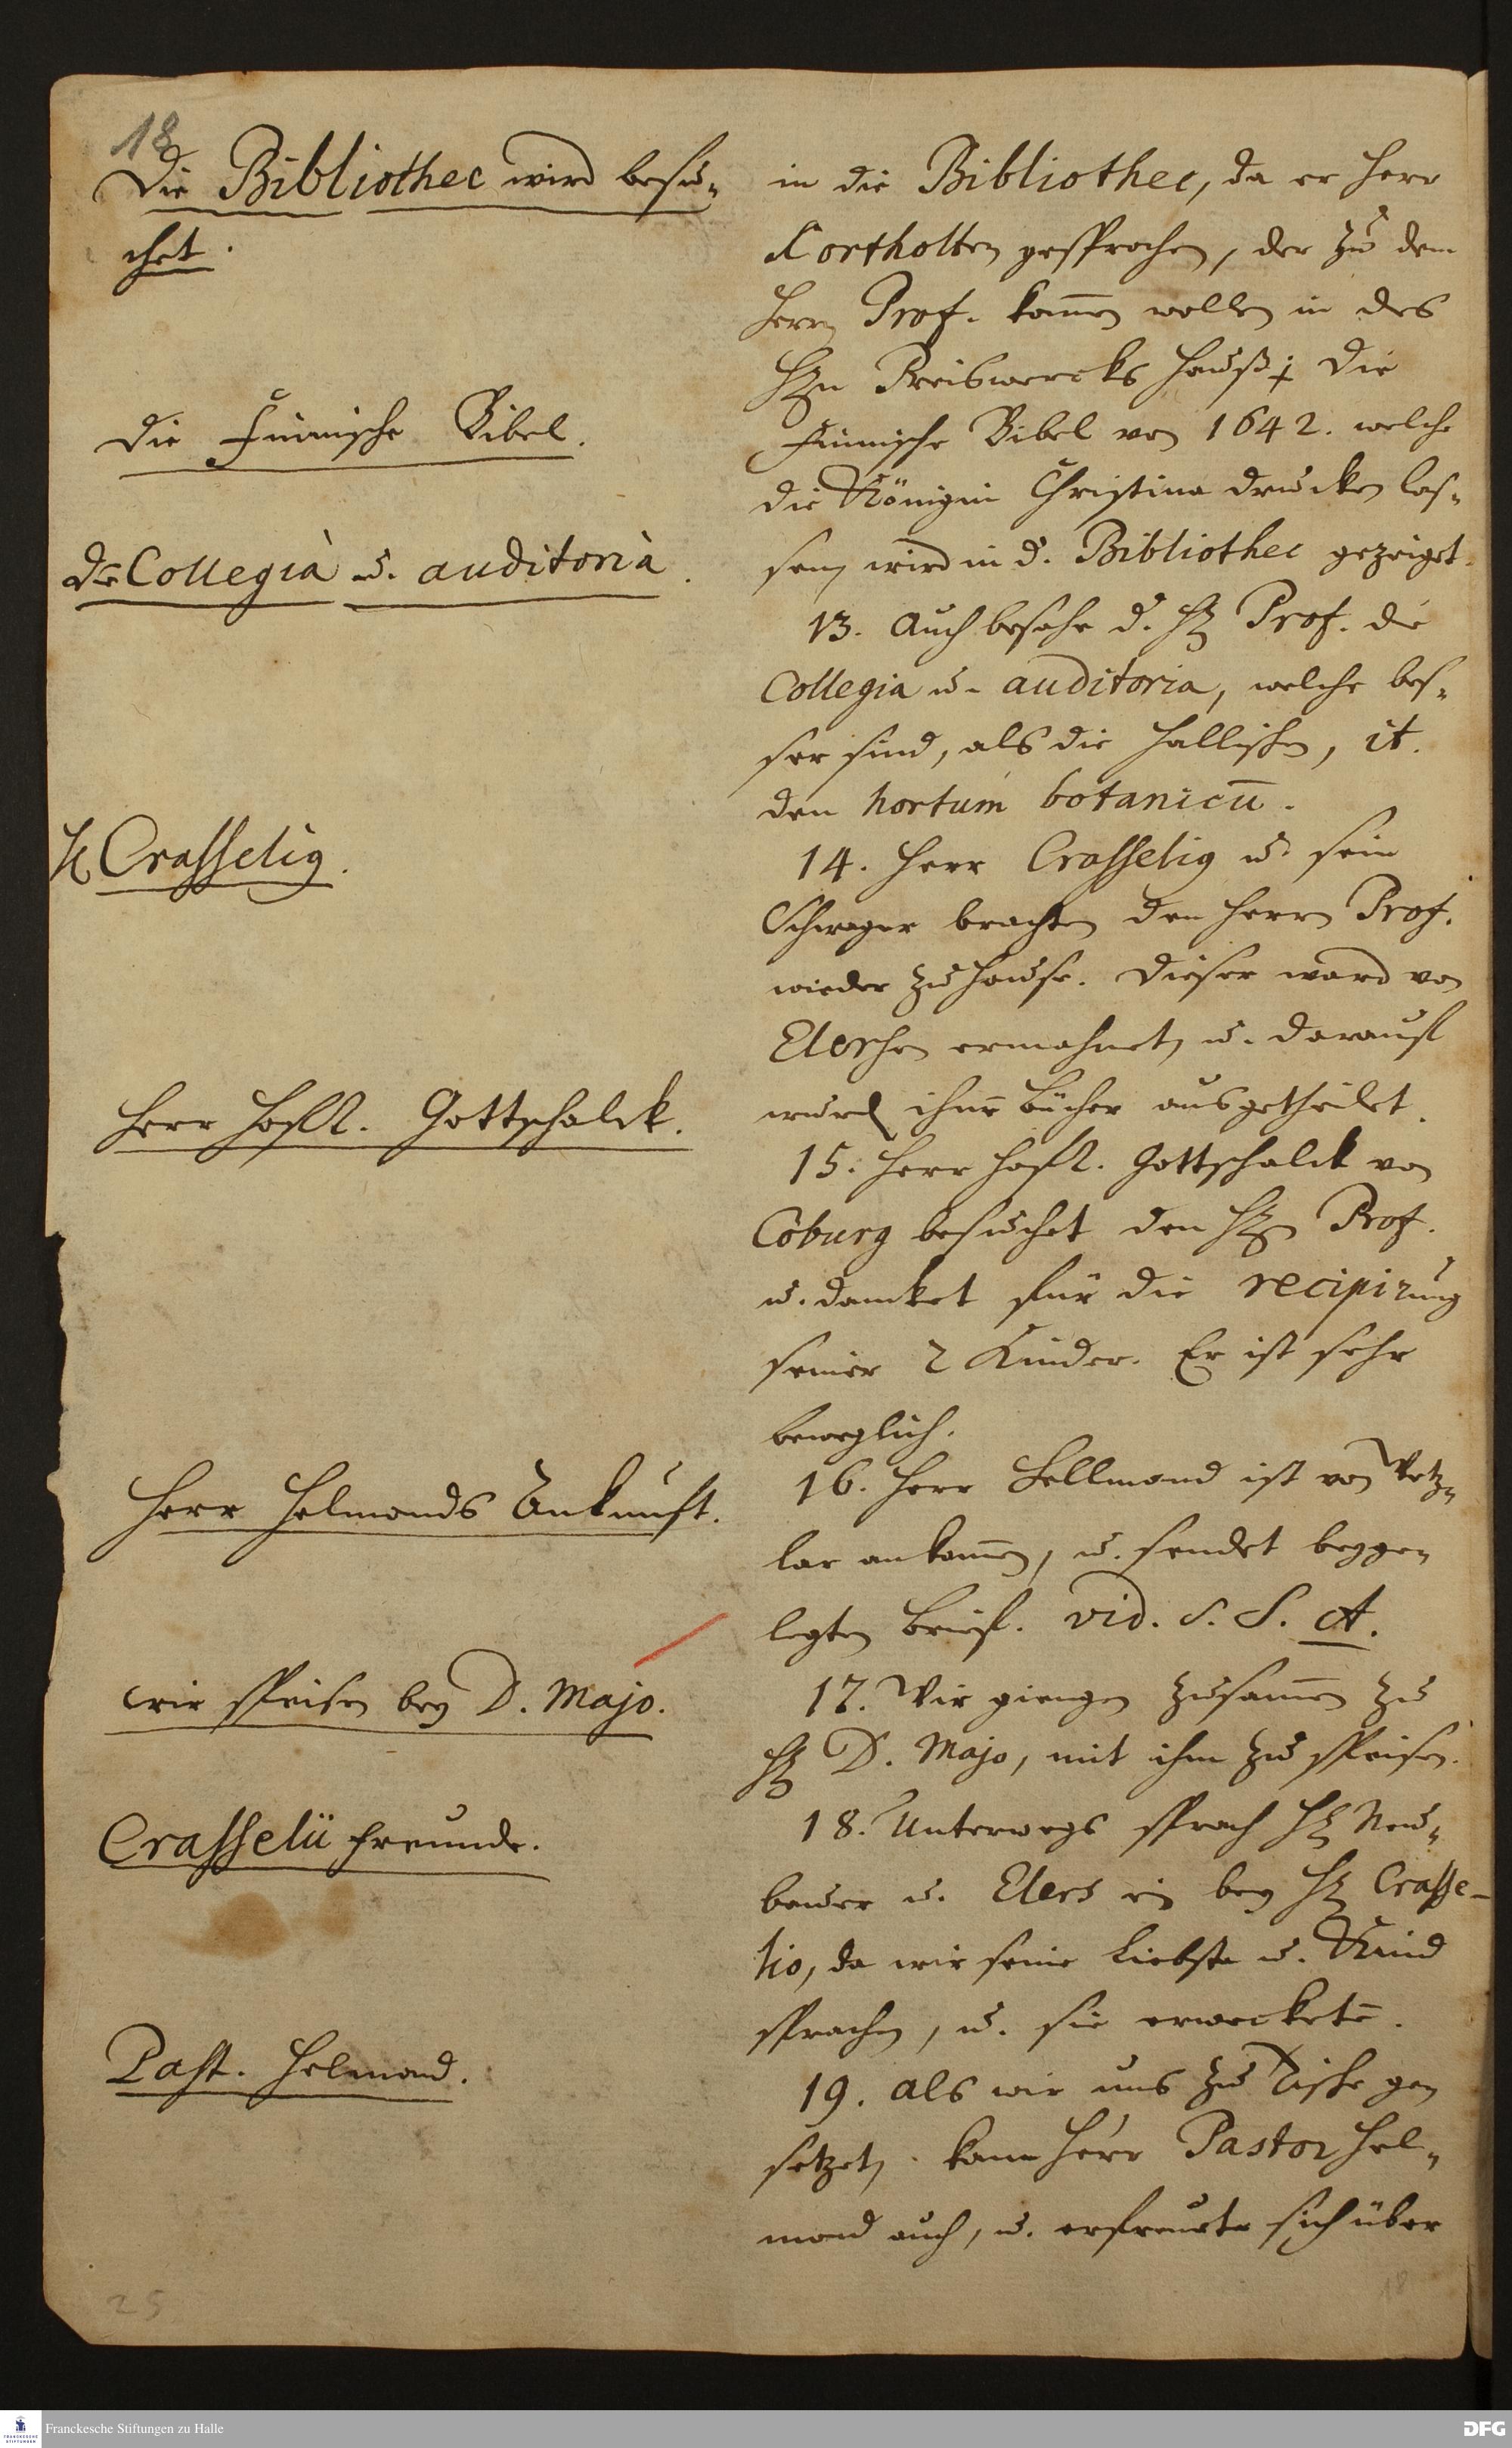 18
Die Bibliothec wird besu-
chet.
Die Finnische Bibel.
Collegia u. auditoria.
H. Crasselig.
Herr Hoff. Gottschalck.
Herr Helmonds Ankunft.
wir speisen bey D. Majo.
Crasselii freunde.
Past. Helmond.
25
in die Bibliothec, da er Herr
Kortholten gesprochen, der zu dem
Herrn Prof. kom̄en wollen in des
Hn Preiswercks Hauß; Die
Finnische Bibel von 1642. welche
die Königin Christina drucken las-
sen, wird in d. Bibliothec gezeiget.
13. Auch besahe d. H. Prof. die
Collegia u. auditoria, welche bes-
ser sind, als die Hallischen, it.
den hortum botanicū.
14. Herr Crasselig u. sein
Schwager brachten den Herrn Prof.
wieder zu Hause. Dieser ward von
Elerschen ermahnet, u. darauf
wurd ihnē Bücher ausgetheilet.
15. Herr Hoff. Gottschalck von
Coburg besuchet den Hn Prof.
u. dancket für die recipirung
seiner 2 Kinder. Er ist sehr
beweglich.
16. Herr Hellmond ist von Wetz-
lar ankom̄en, u. sendet beyge-
legten Brief. vid. S. S. A.
17. Wir giengen zusam̄en zu
H. D. Majo, mit ihm zu speisen.
18. Unterwegs sprach H. Neu-
bauer u. Elers ein bey H. Crasse-
lio, da wir seine Liebste u. Kind
sprachen, u. sie erwecketē.
19. Als wir uns zu Tische ge-
setzet, kam Herr Pastor Hel-
mond auch, u. erfreuete sich über
18
Franckesche Stiftungen zu Halle
DFG